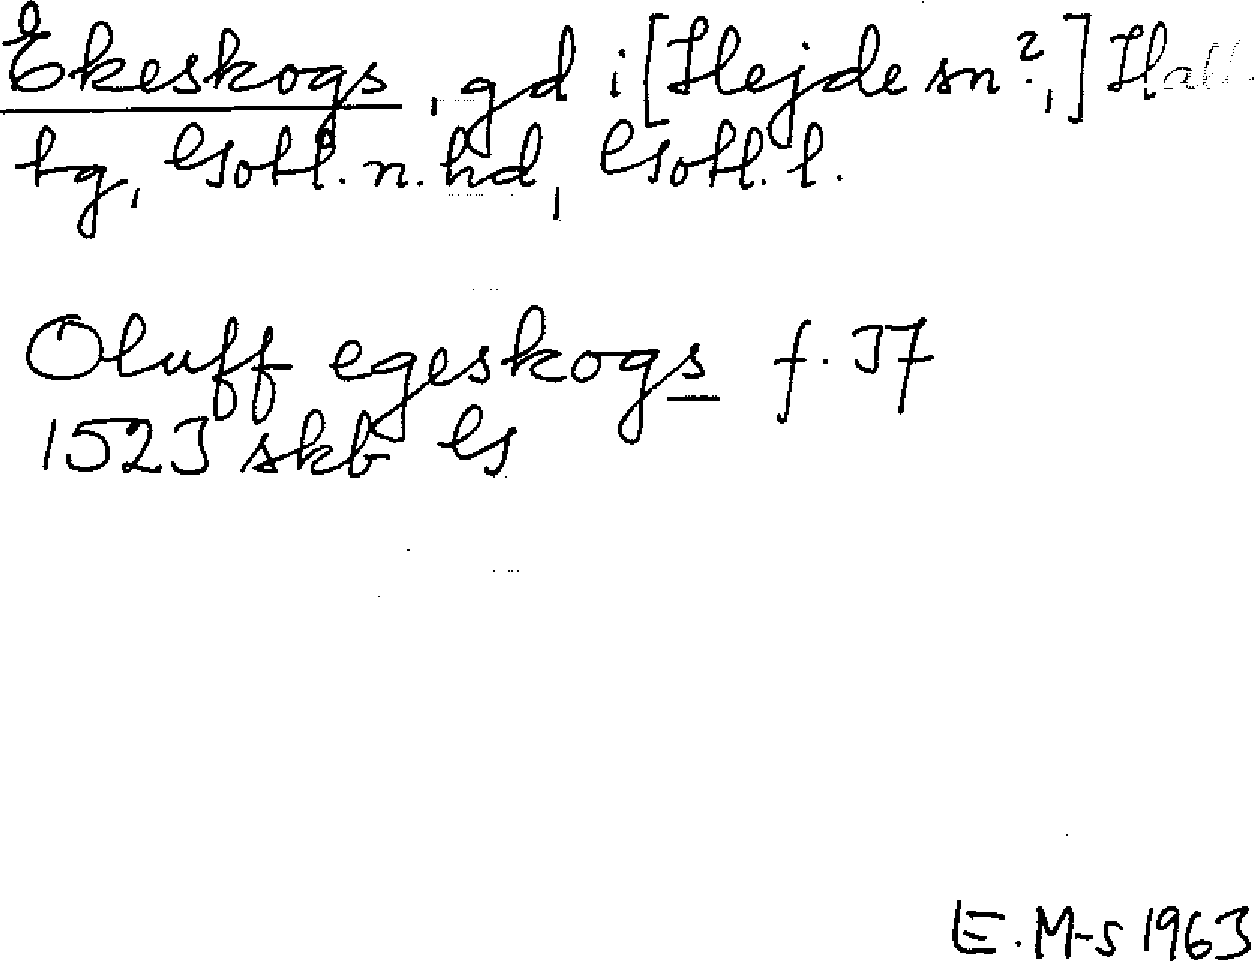 Ekeskogs, gd i [Hejde sn?,] Halla
tg, Gotl. n. hd, Gotl. l.
Oluff egeskogs f. 37
1523 skb G
E. M-s 1963